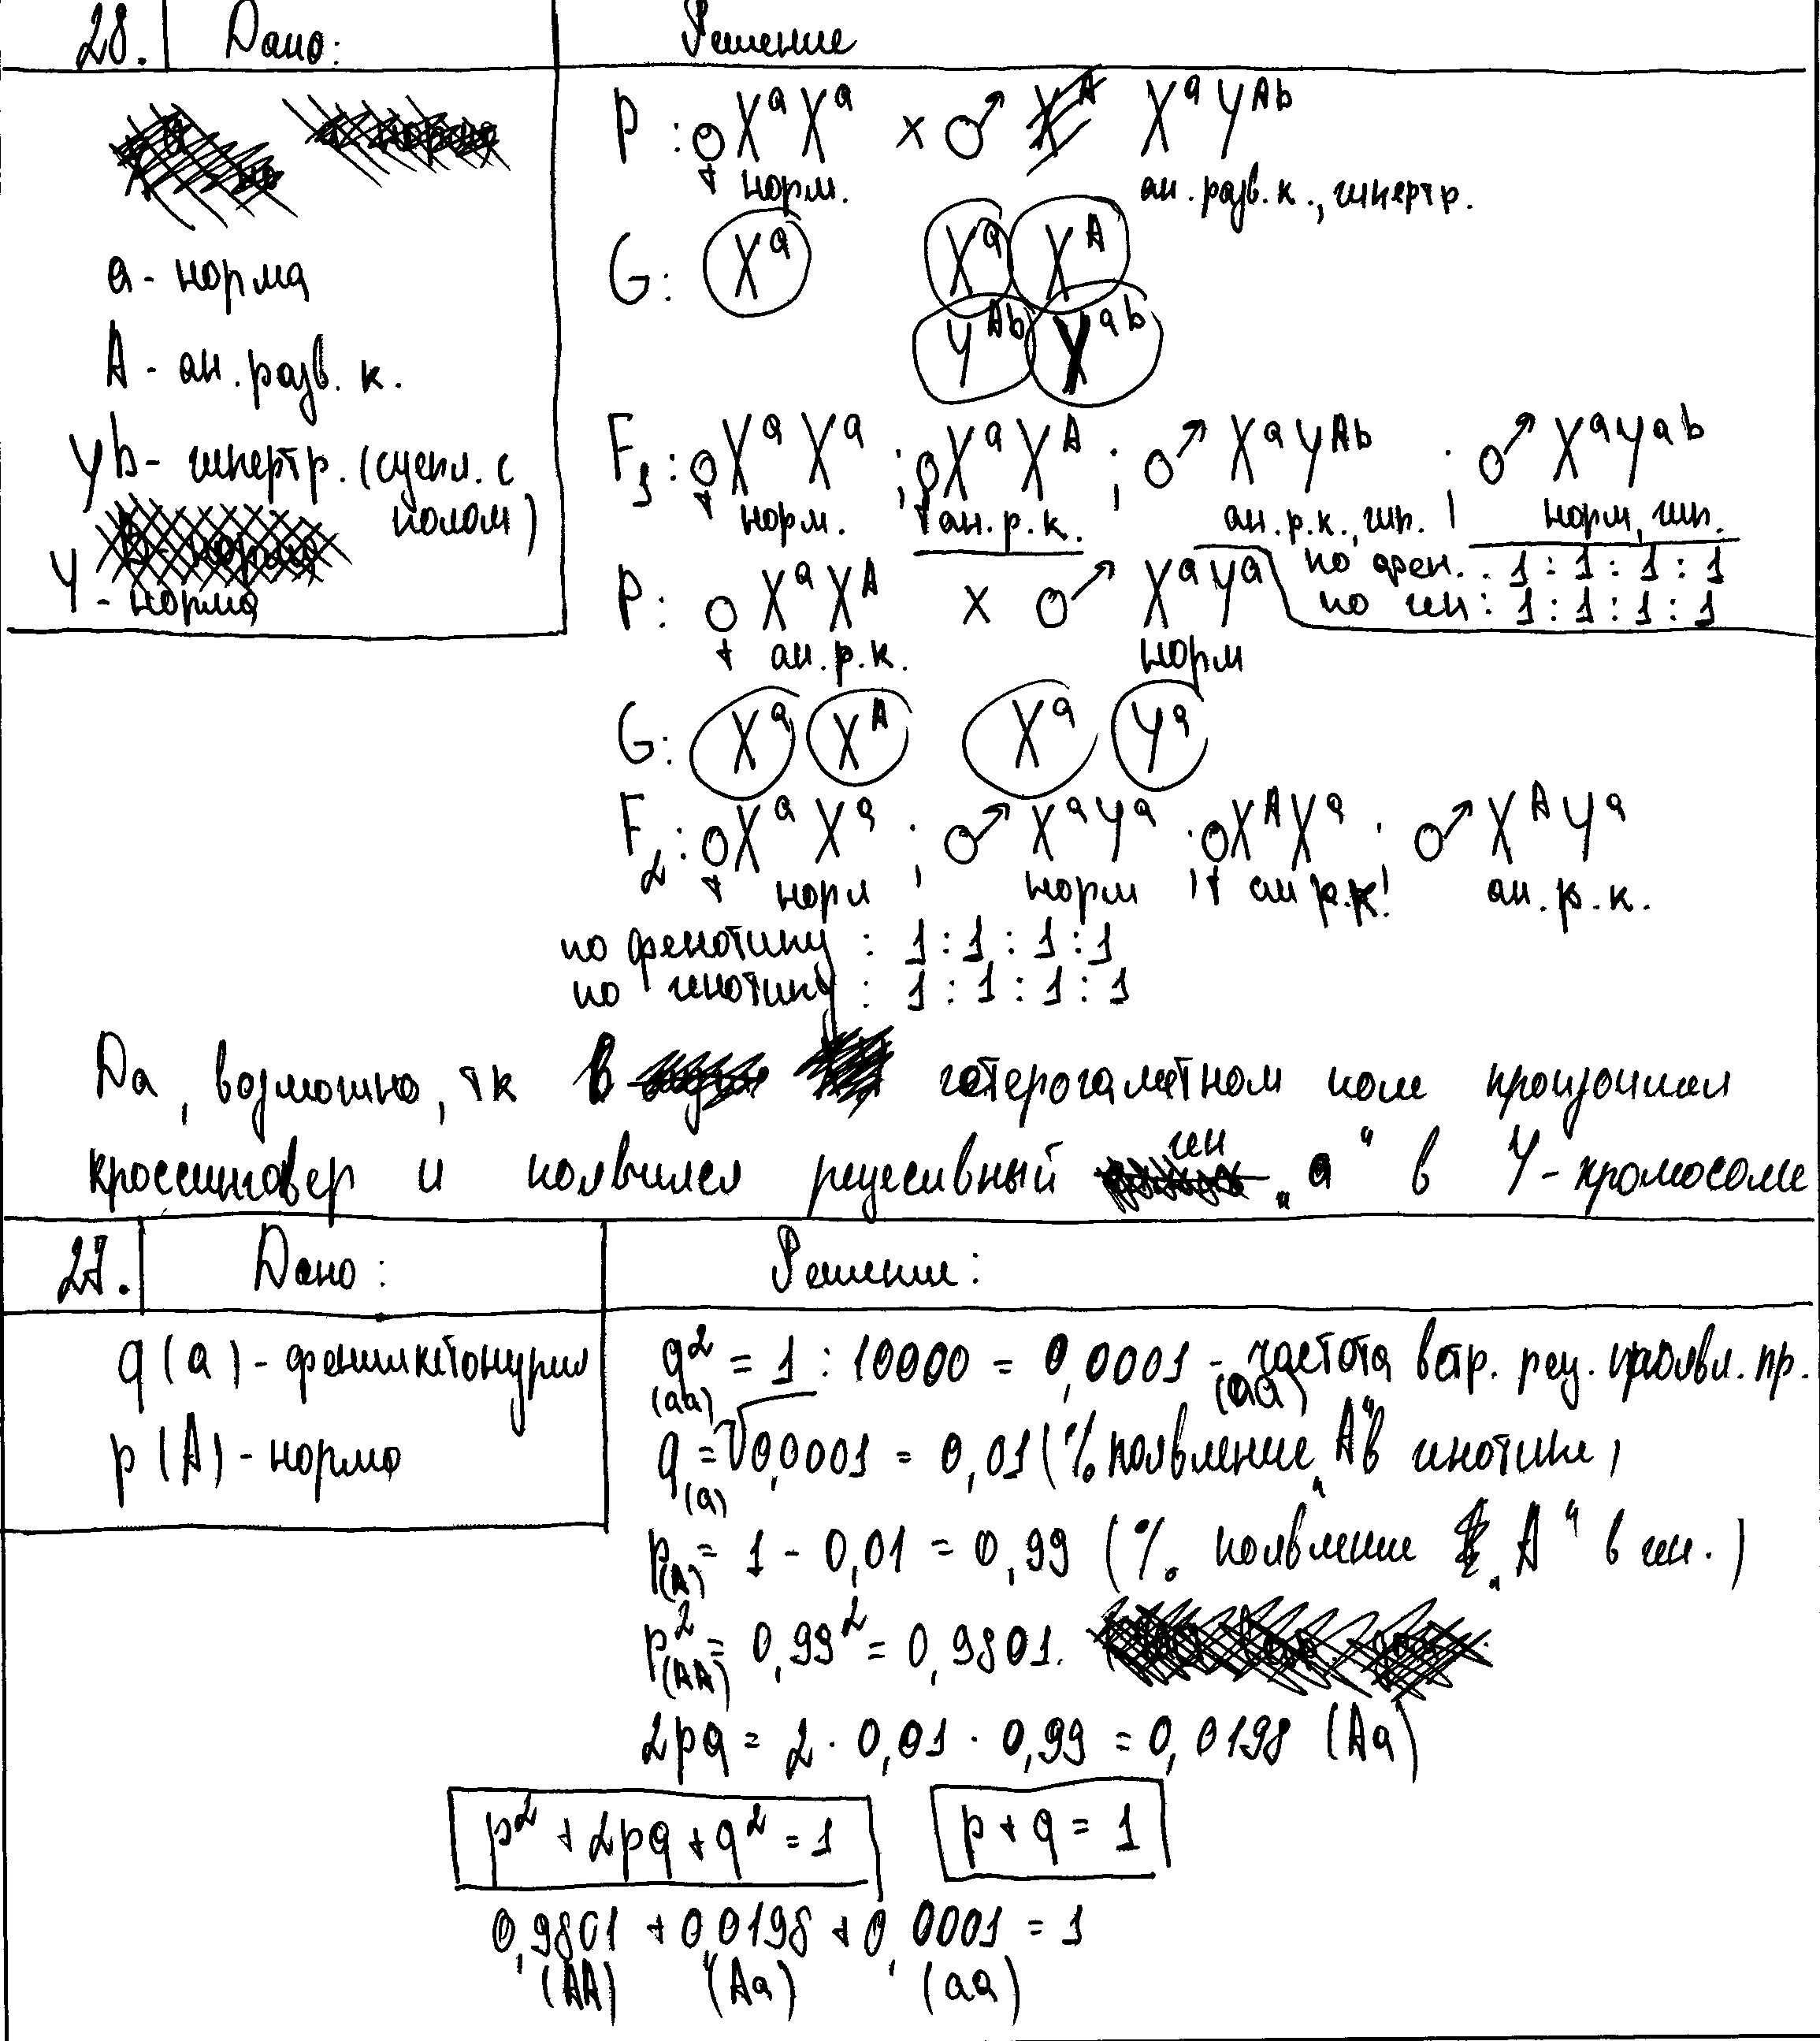 28. Дано: Решение
P: ♀ XᵃXᵃ x ♂ XᵃYᴬᵇ
норм. ан. разв. к., гипертр.
a - норма
G: Xᵃ Xᵃ Xᴬ
Yᴬᵇ Yᵃᵇ
A - ан. разв. к.
Yb - гипертр. (сцепл. с полом)
Y - норма
F₁: ♀ XᵃXᵃ ; ♀ XᵃXᴬ ; ♂ XᵃYᴬᵇ ; ♂ XᵃYᵃᵇ
норм. ан. р. к. ан. р. к., гип. норм, гип.
по фен. : 1 : 1 : 1 : 1
по ген : 1 : 1 : 1 : 1
P: ♀ XᵃXᴬ x ♂ XᵃYᵃ
ан. р. к. норм
G: Xᵃ Xᴬ Xᵃ Yᵃ
F₂: ♀ XᵃXᵃ ; ♂ XᵃYᵃ ; ♀ XᴬXᵃ ; ♂ XᴬYᵃ
норм норм ан р.к. ан. р. к.
по фенотипу : 1 : 1 : 1 : 1
по генотипу : 1 : 1 : 1 : 1
Да, возможно, тк в гетерогаметном поле произошел
кроссинговер и появился рецесивный ген „a“ в Y-хромосоме
27. Дано: Решение:
q(a) - фенилкетонурия
p(A) - норма
q² (aa) = 1 : 10000 = 0,0001 - частота встр. рец. проявл. пр. (aa)
q (a) = √0,0001 = 0,01 (% появление „A“ в генотипе)
p (A) = 1 - 0,01 = 0,99 (% появление „A“ в ген.)
p² (AA) = 0,99² = 0,9801.
2pq = 2 · 0,01 · 0,99 = 0,0198 (Aa)
p² + 2pq + q² = 1 p + q = 1
0,9801 + 0,0198 + 0,0001 = 1
(AA) (Aa) (aa)